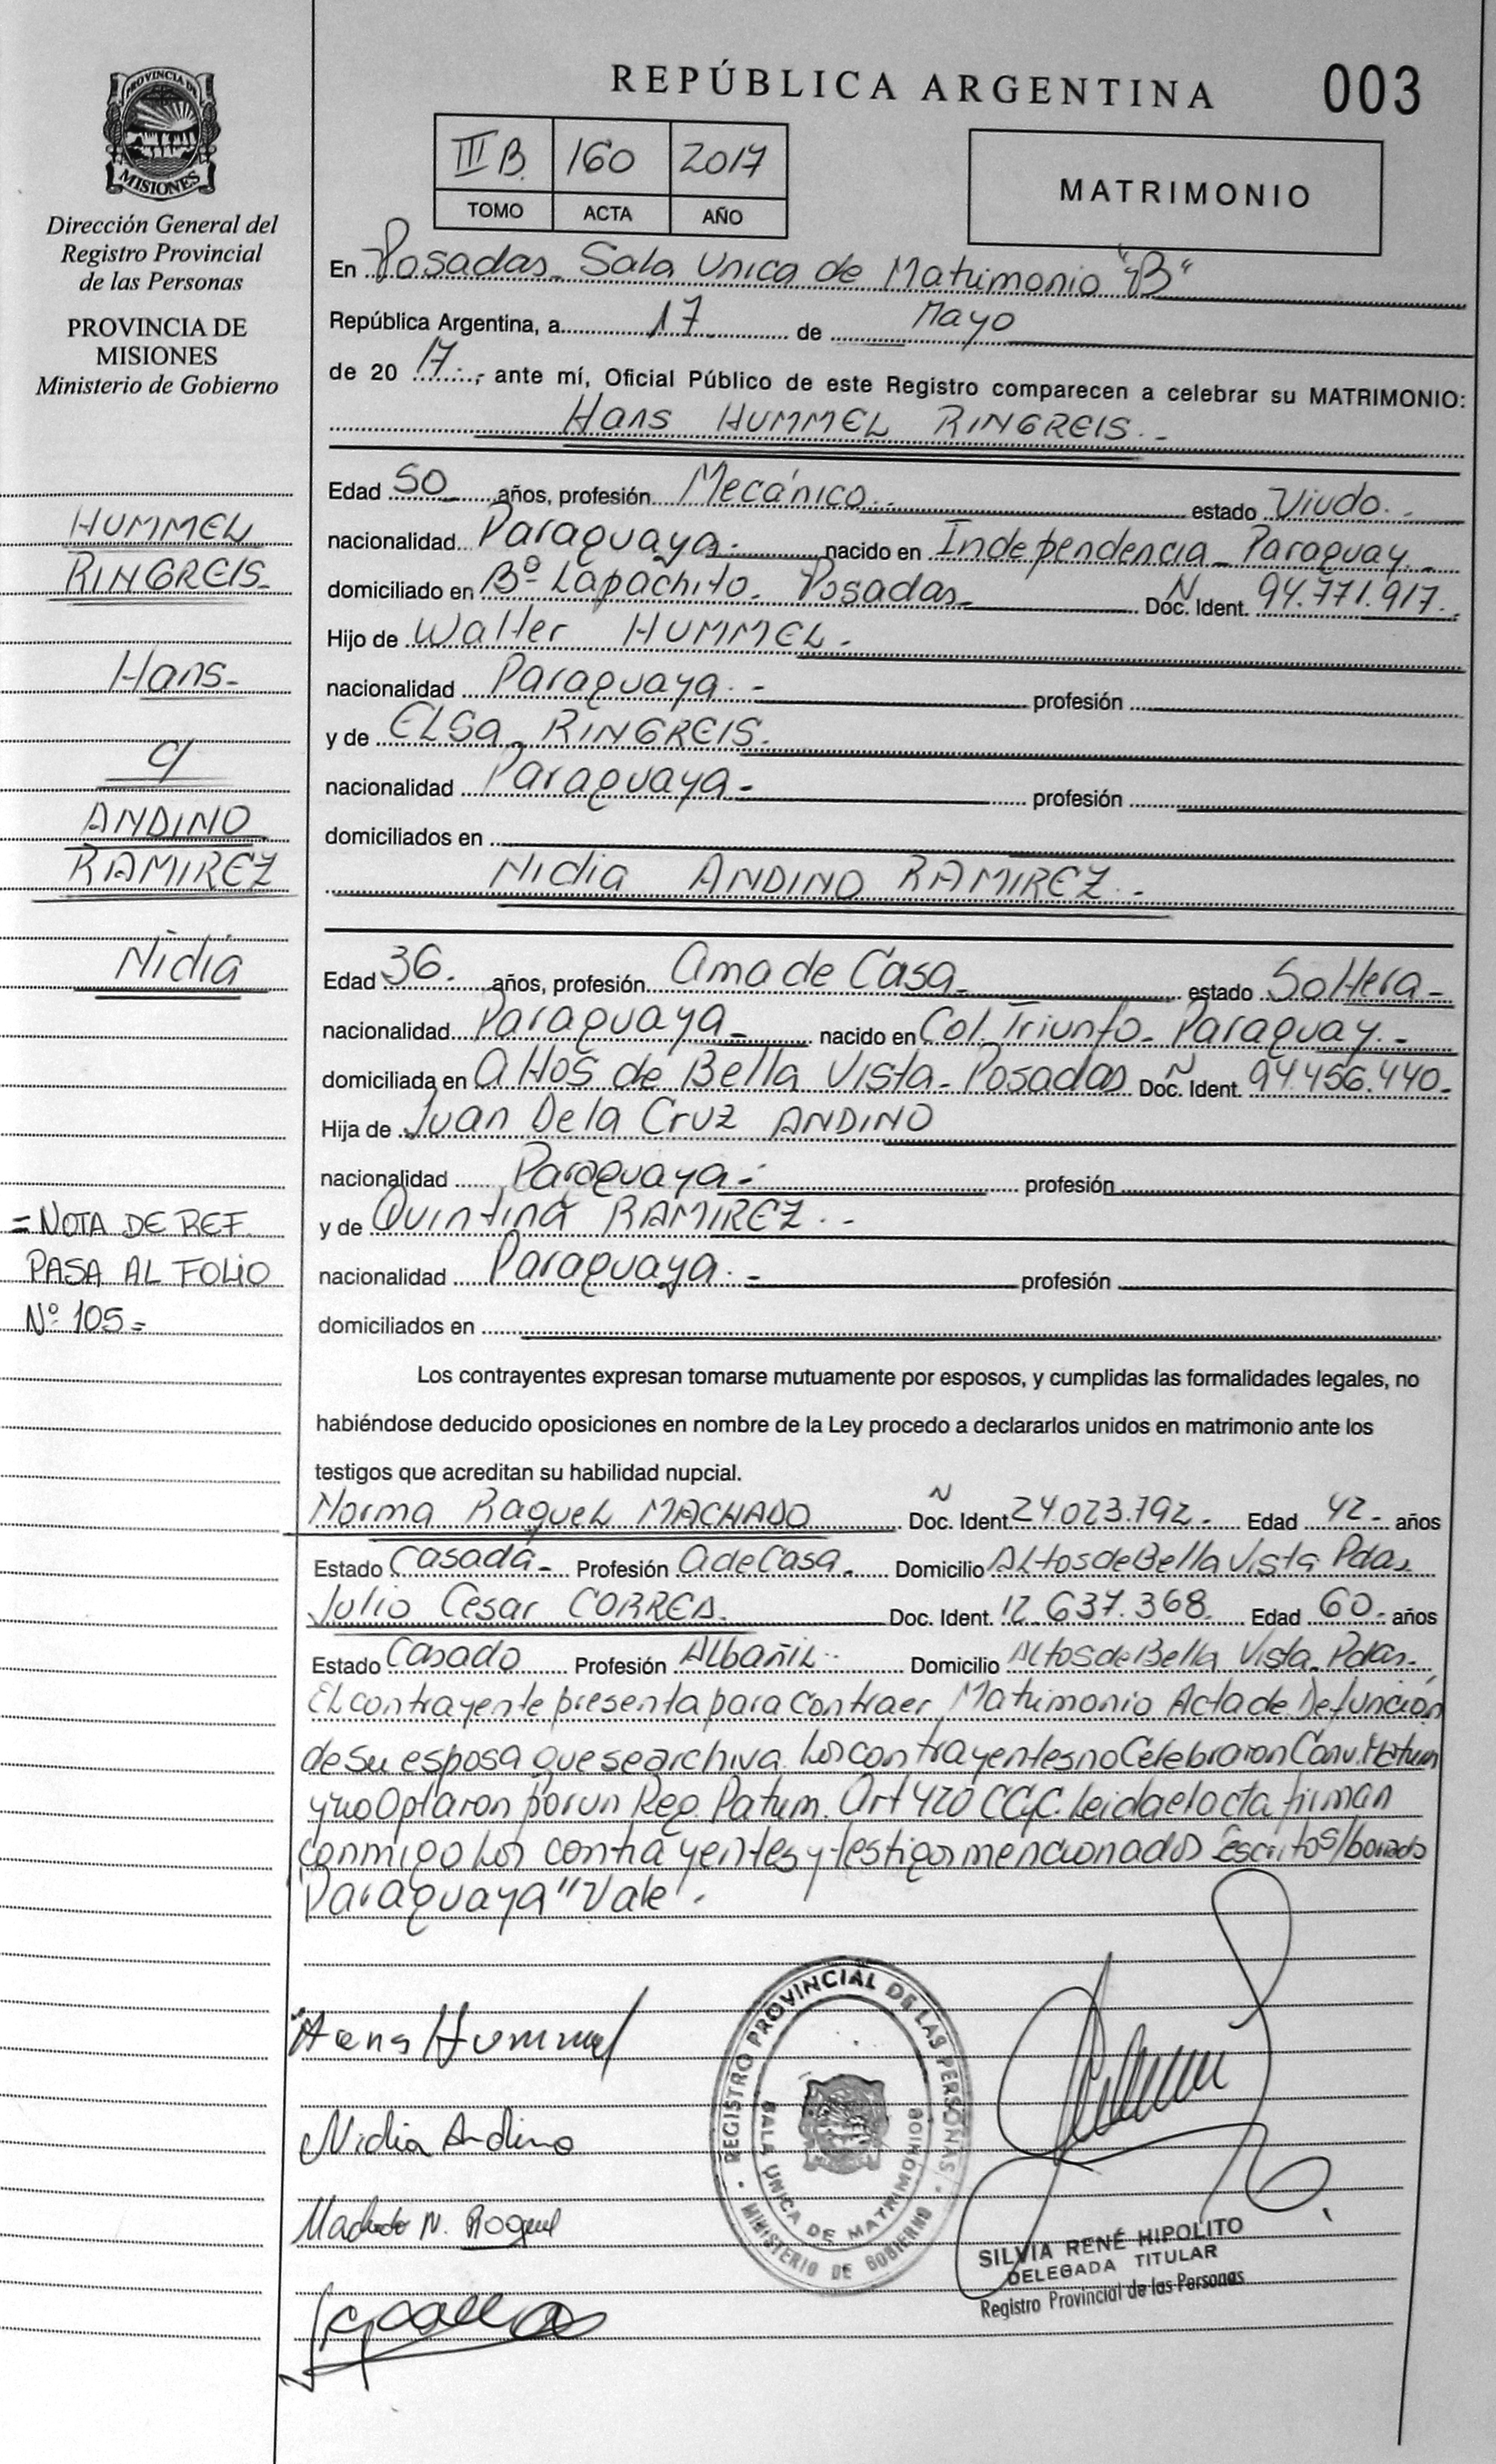 PROVINCIA DE
MISIONES
Dirección General del
Registro Provincial
de las Personas
PROVINCIA DE
MISIONES
Ministerio de Gobierno
HUMMEL
RINGREIS-
Hans-
c/
ANDINO
RAMIREZ
Nidia
=NOTA DE REF.
PASA AL FOLIO
Nº 105=
REPÚBLICA ARGENTINA 003
III B. 160 2017
TOMO ACTA AÑO
MATRIMONIO
En Posadas_ Sala Unica de Matrimonio "B"
República Argentina, a 17 de Mayo
de 20 17.-, ante mí, Oficial Público de este Registro comparecen a celebrar su MATRIMONIO:
Hans HUMMEL RINGREIS.-
Edad 50 años, profesión Mecánico.- estado Viudo.-
nacionalidad Paraguaya.- nacido en Independencia_ Paraguay.-
domiciliado en Bº Lapachito_ Posadas_ Doc. Ident. N 94.771.917.-
Hijo de Walter HUMMEL.-
nacionalidad Paraguaya.- profesión
y de ELSa RINGREIS.
nacionalidad Paraguaya- profesión
domiciliados en
Nidia ANDINO RAMIREZ.-
Edad 36. años, profesión Ama de Casa_ estado Soltera-
nacionalidad Paraguaya_ nacido en Col. Triunfo_ Paraguay.-
domiciliada en Altos de Bella Vista_ Posadas Doc. Ident. N 94.456.440-
Hija de Juan De la Cruz ANDINO
nacionalidad Paraguaya.- profesión
y de Quintina RAMIREZ.-
nacionalidad Paraguaya.- profesión
domiciliados en
Los contrayentes expresan tomarse mutuamente por esposos, y cumplidas las formalidades legales, no
habiéndose deducido oposiciones en nombre de la Ley procedo a declararlos unidos en matrimonio ante los
testigos que acreditan su habilidad nupcial.
Norma Raquel MACHADO Doc. Ident. N 24.023.792.- Edad 42- años
Estado Casada- Profesión A de Casa. Domicilio Altos de Bella Vista Pdas.
Julio Cesar CORREA. Doc. Ident. 12.637.368. Edad 60- años
Estado Casado Profesión Albañil.- Domicilio Altos de Bella Vista_ Pdas.
El contrayente presenta para contraer Matrimonio Acta de Defunción
de su esposa que se archiva. Los contrayentes no Celebraron Conv. Matrim
y no Optaron por un Reg. Patrim. Art 420 CCyC. Leida el acta firman
conmigo los contrayentes y testigos mencionados Escrito s/borrado
Paraguaya "Vale".
Hans Hummel
Nidia Andino
Machado N. Raquel
REGISTRO PROVINCIAL DE LAS PERSONAS
SALA UNICA DE MATRIMONIOS
MINISTERIO DE GOBIERNO
SILVIA RENÉ HIPOLITO
DELEGADA TITULAR
Registro Provincial de las Personas